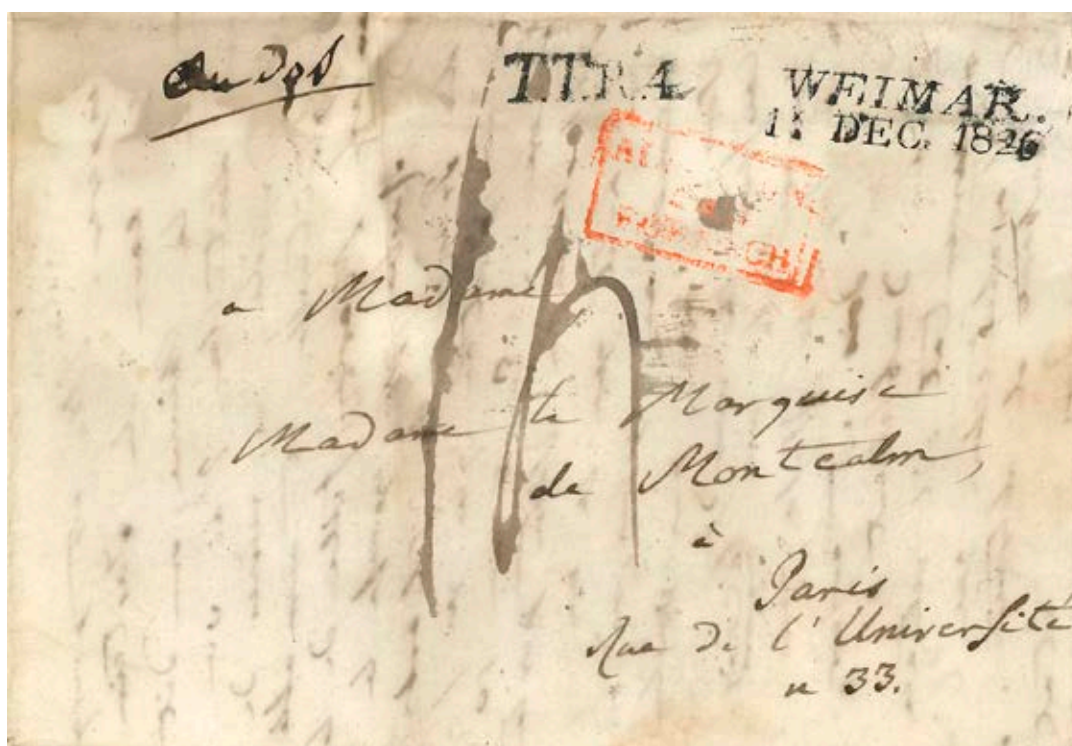 T.T.R.4
WEIMAR.
11 DEC. 1826
a Madame
Madame la Marquise
de Montcalm,
à
Paris
Rue de l'Université
n 33.